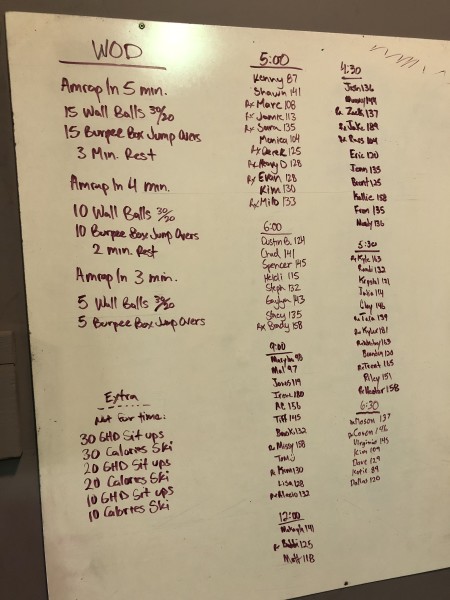 WOD
Amrap In 5 min.
15 Wall Balls 30/20
15 Burpee Box Jump Overs
3 Min. Rest
Amrap In 4 min.
10 Wall Balls 30/20
10 Burpee Box Jump Overs
2 min. Rest
Amrap In 3 min.
5 Wall Balls 30/20
5 Burpee Box Jump Overs
Extra
Not For time:
30 GHD Sit ups
30 Calories Ski
20 GHD Sit ups
20 Calories Ski
10 GHD Sit ups
10 Calories Ski
5:00
Kenny 87
Shawn 141
Rx Marc 108
Rx Jamie 113
Rx Sara 135
Monica 104
Rx Derek 125
Rx Henry D 128
Rx Evan 128
Kim 130
Rx Milo 133
6:00
Dustin B. 124
Chad 141
Spencer 145
Heidi 115
Steph 132
143
Stacy 135
Rx Brady 158
9:00
98
Mal 97
Jonas 119
Irene 180
156
Tiff 145
132
Rx Missy 158
Tony
Rx 130
Lisa 128
Rx Alexis 132
12:00
Makayla 141
Rx 125
Matt 118
4:30
Josh 136
149
Rx Zack 137
Rx Jake 189
Rx Russ 104
Eric 120
Jenn 135
Brent 125
Kallie 158
Fran 135
Mandy 136
5:30
Rx Kyle 163
132
Krystal 131
114
Clay 148
Rx Tara 139
Rx Kylie 181
113
120
Rx Trent 165
Riley 151
Rx 158
6:30
Mason 137
146
Virginia 145
Kim 109
Dave 129
Katie 89
Dallas 120